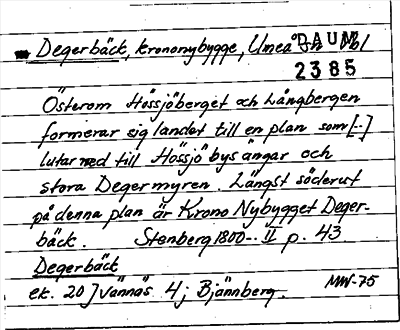 Degerbäck, krononybygge, Umeå sn Vbl
DAUM
2385
Österom Hössjöberget och Långbergen
formerar sig landet till en plan som [--]
lutar ned till Hössjö bys ängar och
stora Degermyren. Längst söderut
på denna plan är Krono Nybygget Deger-
bäck. Stenberg 1800-- II p. 43
Degerbäck
ek. 20 J Vännäs 4j Bjännberg.
MW-75